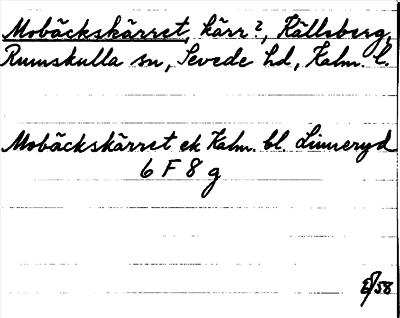 Mobäckskärret, kärr?, Källsberg,
Rumskulla sn, Sevede hd, Kalm. l.
Mobäckskärret ek Kalm. bl. Linneryd
6 F 8 g
58